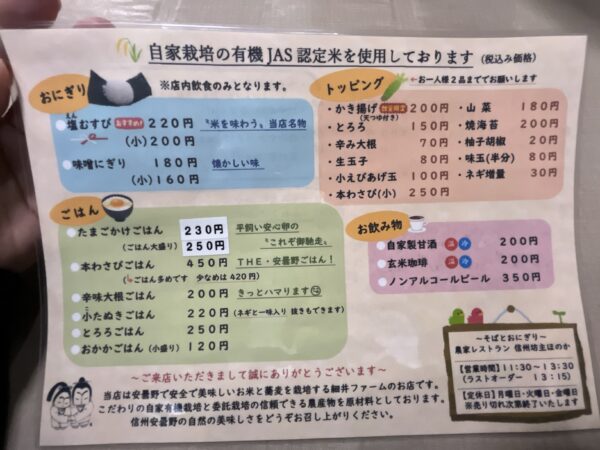 自家栽培の有機JAS認定米を使用しております (税込み価格)
おにぎり
※店内飲食のみとなります。
塩むすび おすすめ! 220円 〝米を味わう〟当店名物
(小)200円
味噌にぎり 180円 懐かしい味
(小)160円
ごはん
たまごかけごはん 230円 平飼い安心卵の
(ごはん大盛り) 250円 〝これぞ御馳走〟
本わさびごはん 450円 THE・安曇野ごはん!
(ごはん多めです 少なめは420円)
辛味大根ごはん 200円 きっとハマります
小たぬきごはん 220円 (ネギと一味入り 抜きもできます)
とろろごはん 250円
おかかごはん(小盛り) 120円
トッピング ←お一人様2品まででお願いします
・かき揚げ 数量限定 200円
(天つゆ付き)
・とろろ 150円
・辛み大根 70円
・生玉子 80円
・小えびあげ玉 100円
・本わさび(小) 250円
・山菜 180円
・焼海苔 200円
・柚子胡椒 20円
・味玉(半分) 80円
・ネギ増量 30円
お飲み物
自家製甘酒 温 冷 200円
玄米珈琲 温 冷 200円
ノンアルコールビール 350円
～そばとおにぎり～
農家レストラン 信州坊主ほのか
【営業時間】11:30～13:30
(ラストオーダー 13:15)
【定休日】月曜日・火曜日・金曜日
※売り切れ次第終了いたします
～ご来店いただきまして誠にありがとうございます～
当店は安曇野で安全で美味しいお米と蕎麦を栽培する細井ファームのお店です。
こだわりの自家有機栽培と委託栽培の信頼できる農産物を原材料としております。
信州安曇野の自然の美味しさをどうぞお召し上がりください。